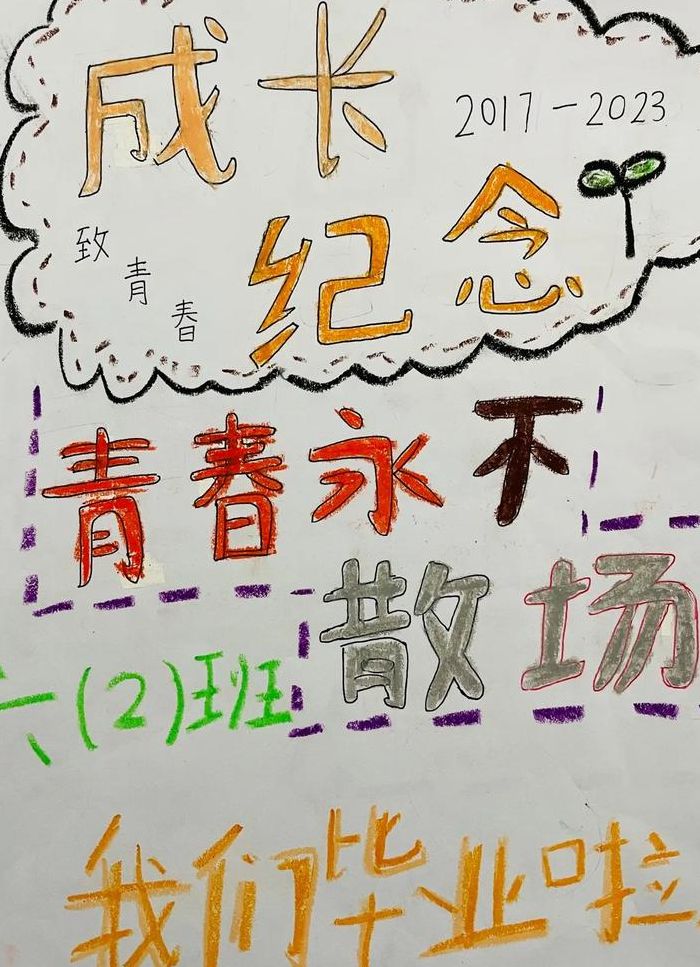 成长
2017-2023
纪念
致青春
青春永不
散场
六(2)班
我们毕业啦